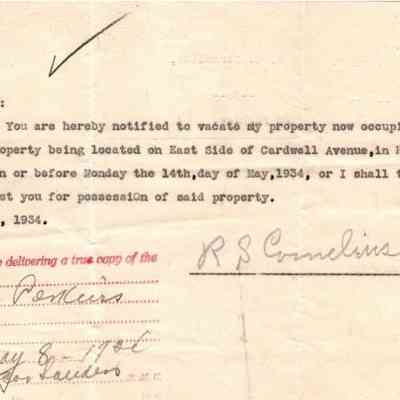 :
You are hereby notified to vacate my property now occupi
operty being located on East Side of Cardwell Avenue,in
n or before Monday the 14th,day of May,1934, or I shall t
st you for possession of said property.
, 1934.
e delivering a true copy of the
R S Cornelius
Perkins
ay 8 - 193
Sanders